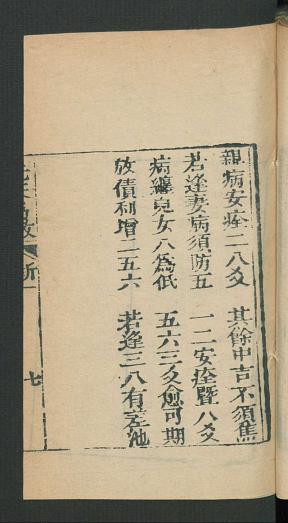 親病安痊二八爻　其餘中吉不須焦
若逢妻病須防五　一二安痊暨八爻
病纏兒女八爲低　五六三爻愈可期
放債利增二五六　若逢三八有差池
七